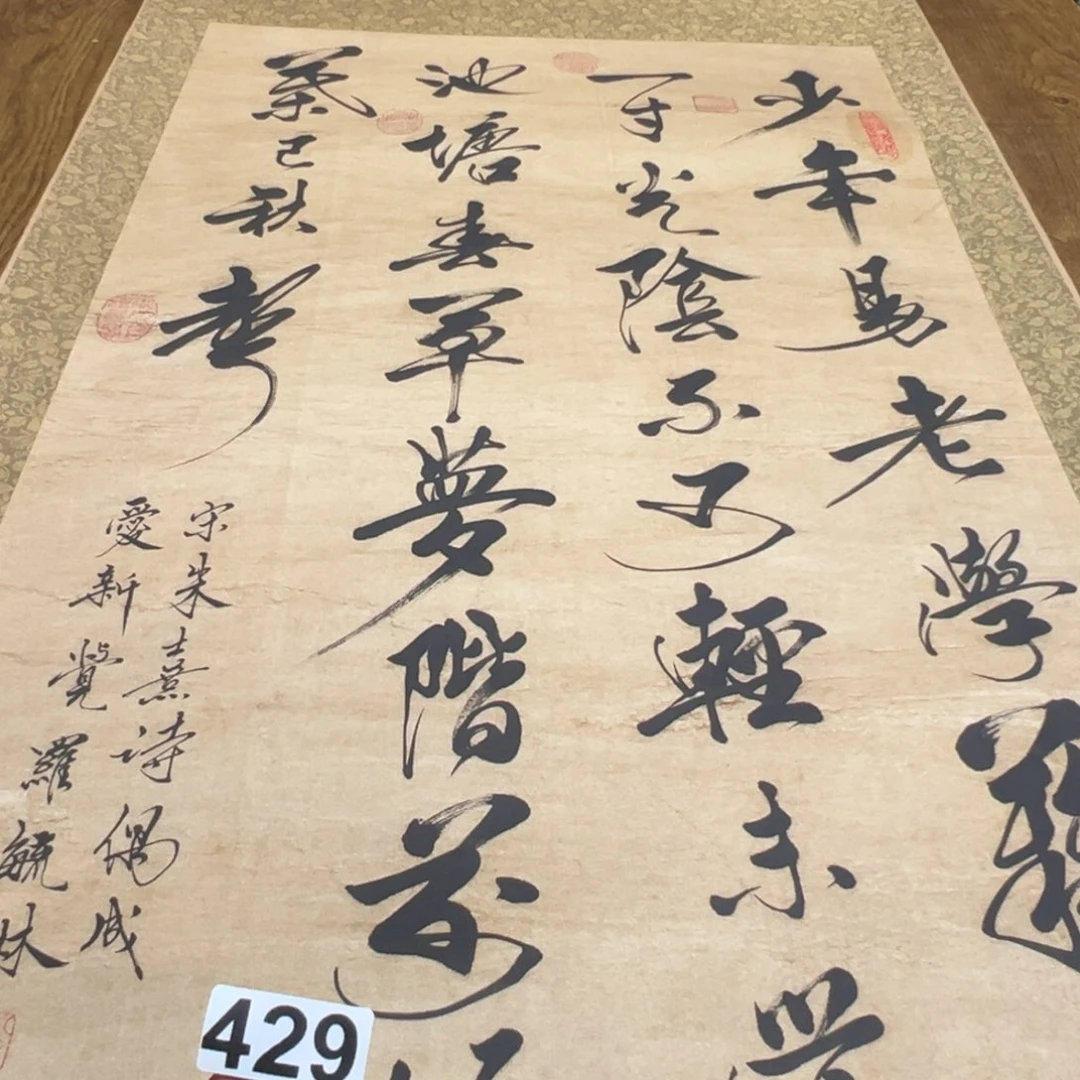 少年易老學難
一寸光陰不可輕未
池塘春草夢階前
葉已秋聲
宋朱熹詩偶成
愛新覺羅毓
429